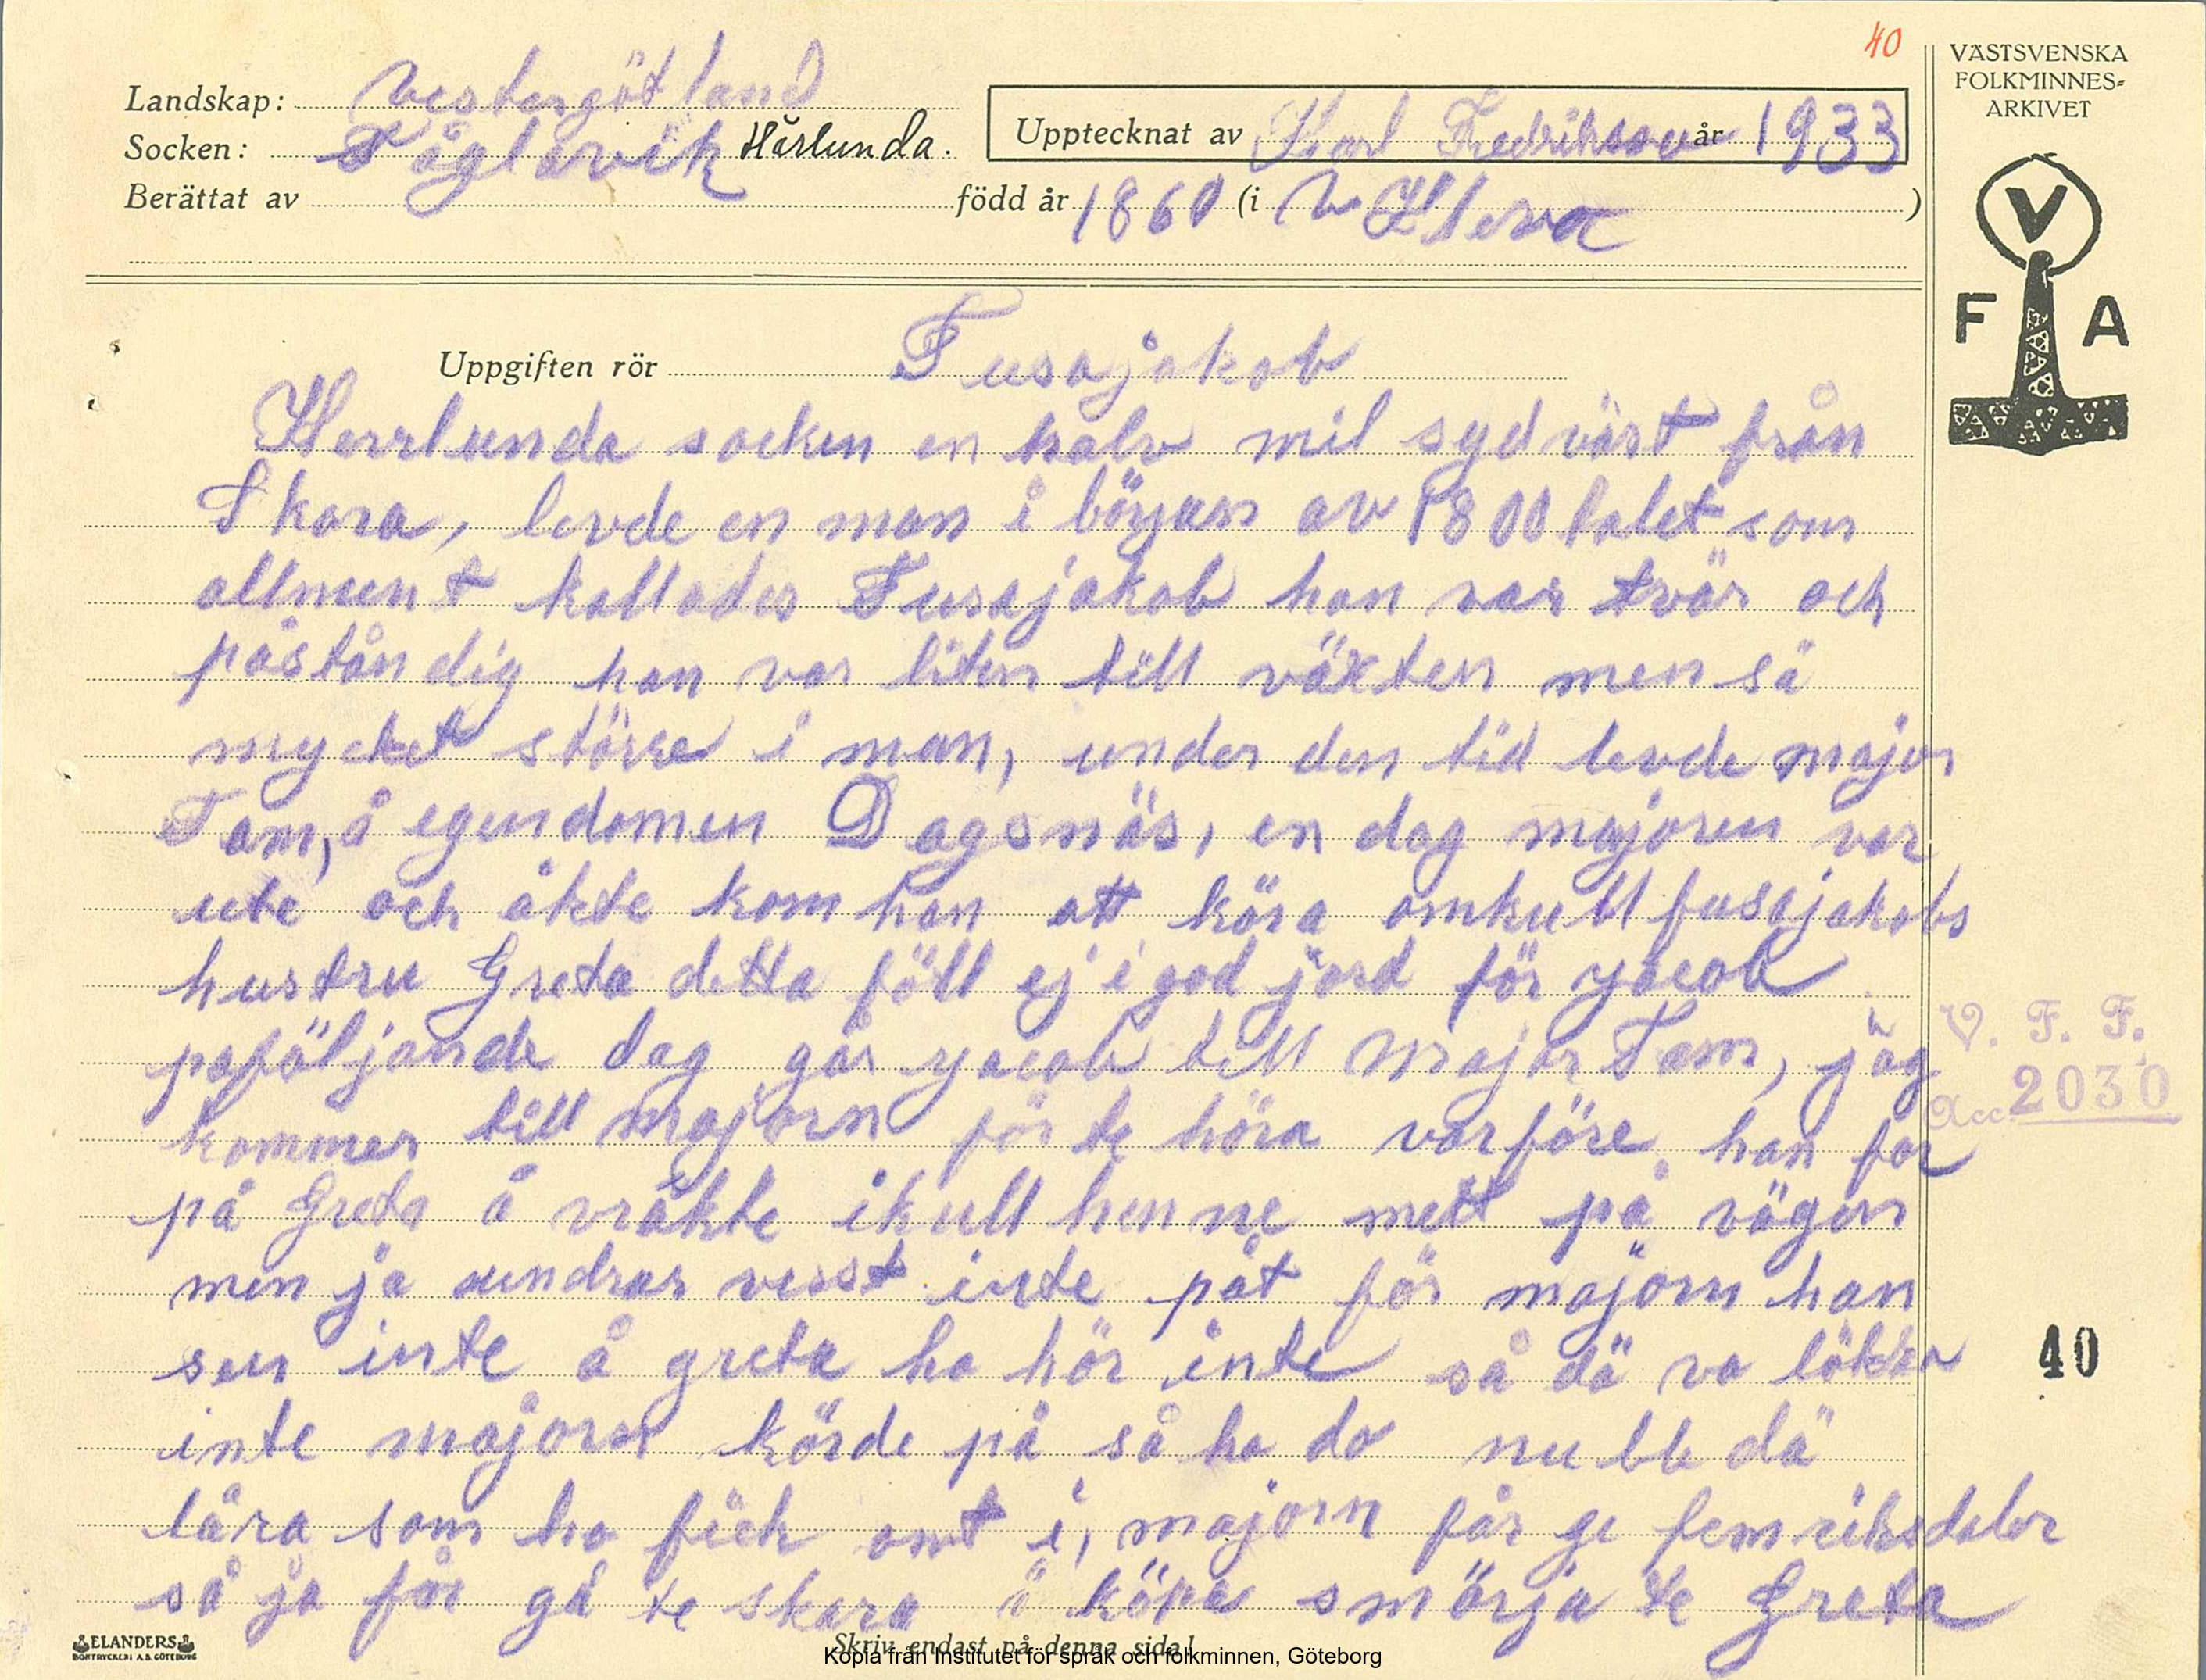 40
VÄSTSVENSKA
FOLKMINNES-
ARKIVET
Landskap: Vestergötland
Socken: Fåglavik Härlunda.
Upptecknat av Karl Fredriksson år 1933
Berättat av född år 1860 (i V Kleva )
V
F A
Uppgiften rör Fusajakob
Herrlunda socken en halv mil sydväst från
Skara, levde en man i början av 1800 talet som
allment kallades Fusajakob han var tvär och
påståndig han var liten till växten men så
mycket större i mun, under den tid levde major
Tam, å egendomen Dagsnäs, en dag majoren var
ute och åkte kom han att köra omkull fusajakobs
hustru Greta detta föll ej i god jord för yacob
påföljande dag går yacob till Major Tam, jag
kommer till majorn för te höra varföre han for
på Greta å vräkte ikull henne mett på vägen
men ja undrar visst inte påt för majorn han
ser inte å greta ho hör inte så dä va
inte majorn körde på så ho do nu ble dä
låra som ho fick ont i, majorn får ge fem riksdaler
så ja får gå te skara å köpa smörja te Greta
V. F. F.
Acc. 2030
40
ELANDERS
BOKTRYCKERI A.B. GÖTEBORG
Skriv endast på denna sida!
Kopia från Institutet för språk och folkminnen, Göteborg